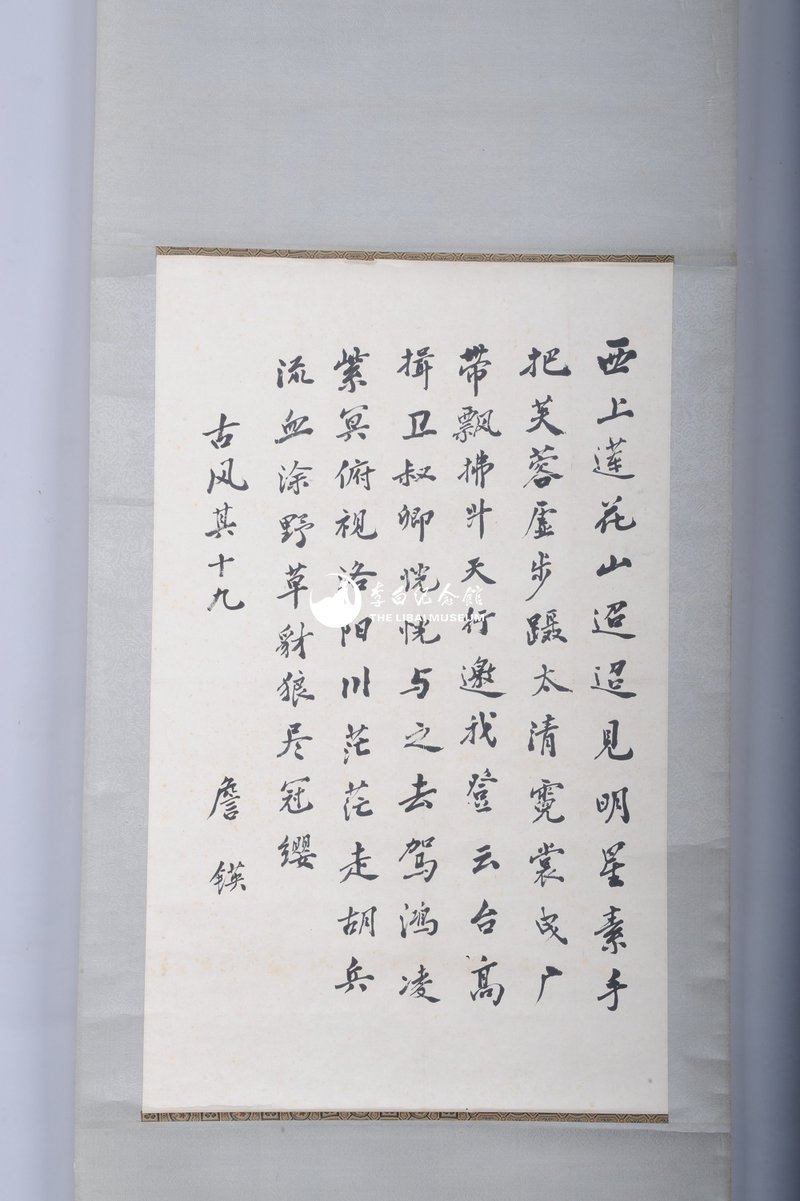 西上莲花山迢迢见明星素手
把芙蓉虚步蹑太清霓裳曳广
带飘拂升天行邀我登云台高
揖卫叔卿恍恍与之去驾鸿凌
紫冥俯视洛阳川茫茫走胡兵
流血涂野草豺狼尽冠缨
古风其十九
詹锳
李白纪念馆
THE LIBAI MUSEUM